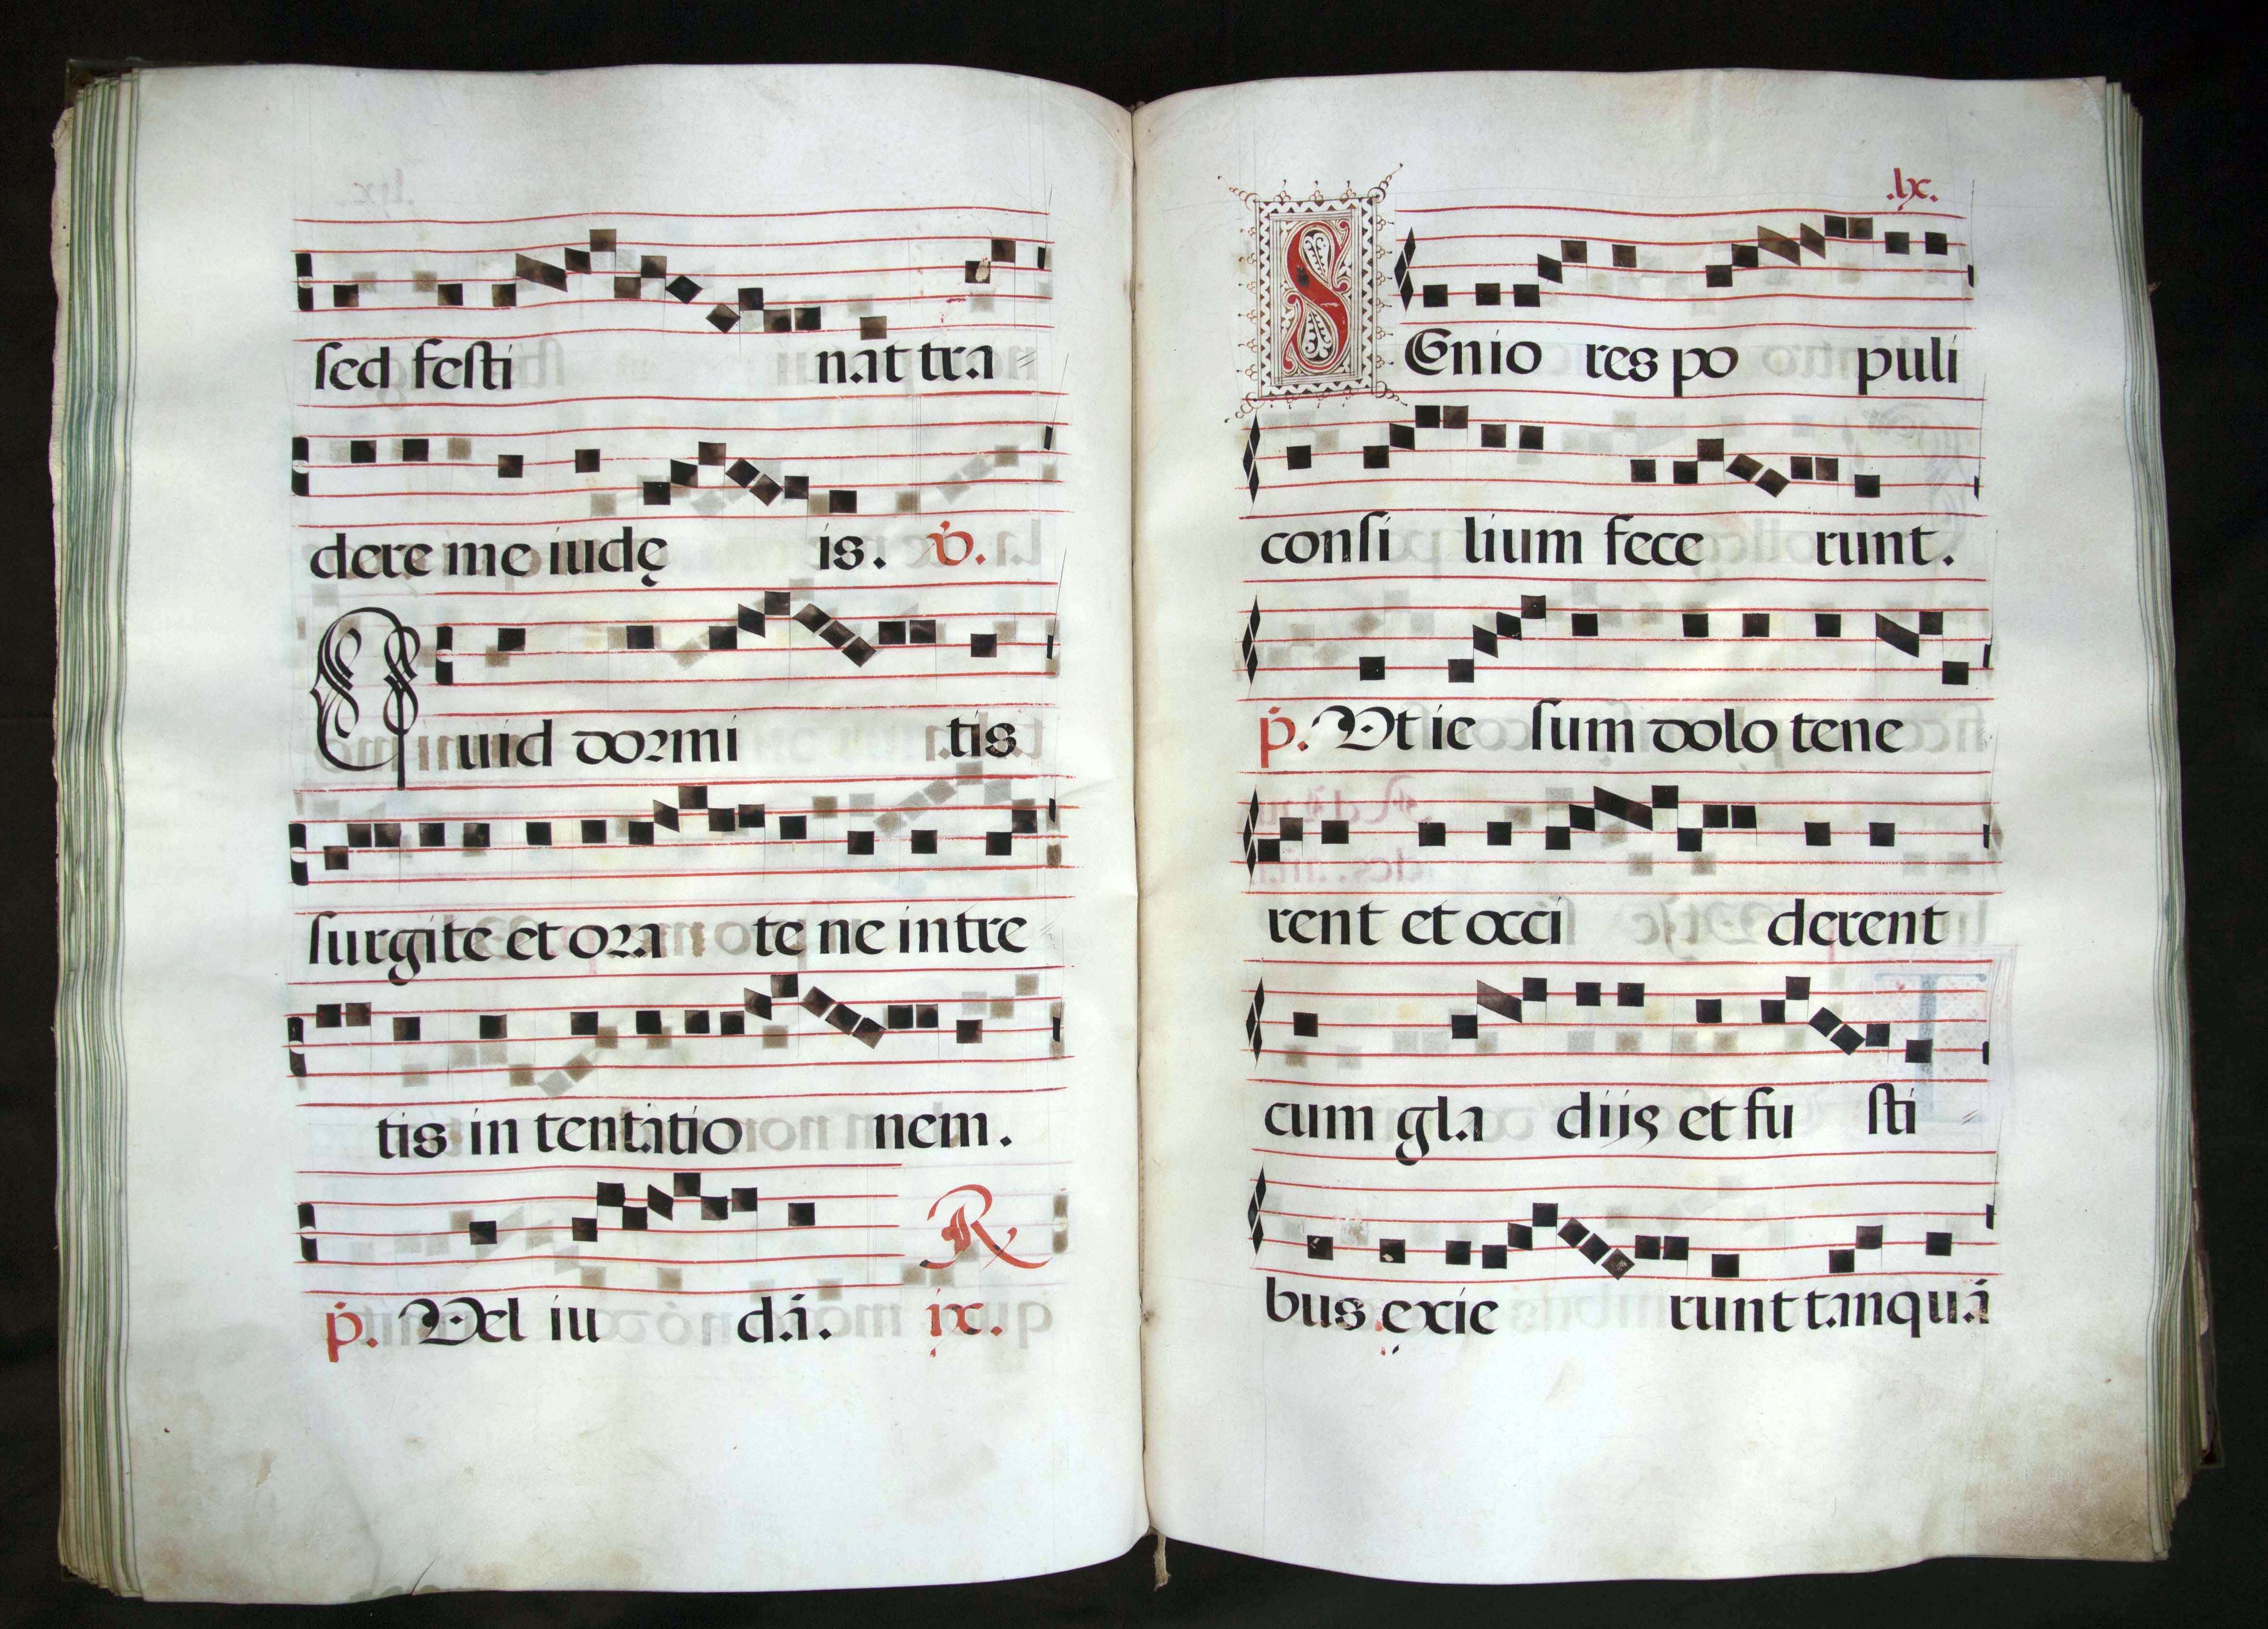 sed festi nat tra=
dere me iudę is. ꝟ.
Quid dormi tis
surgite et ora te ne intre=
tis in tentatio nem.
p̍. Vel iu dā. ℟ ix.
.lx.
SEnio res po puli
consi lium fece runt.
p̍. Vt ie sum dolo tene
rent et occi derent
cum gla dijs et fu sti=
bus exie runt tanquā